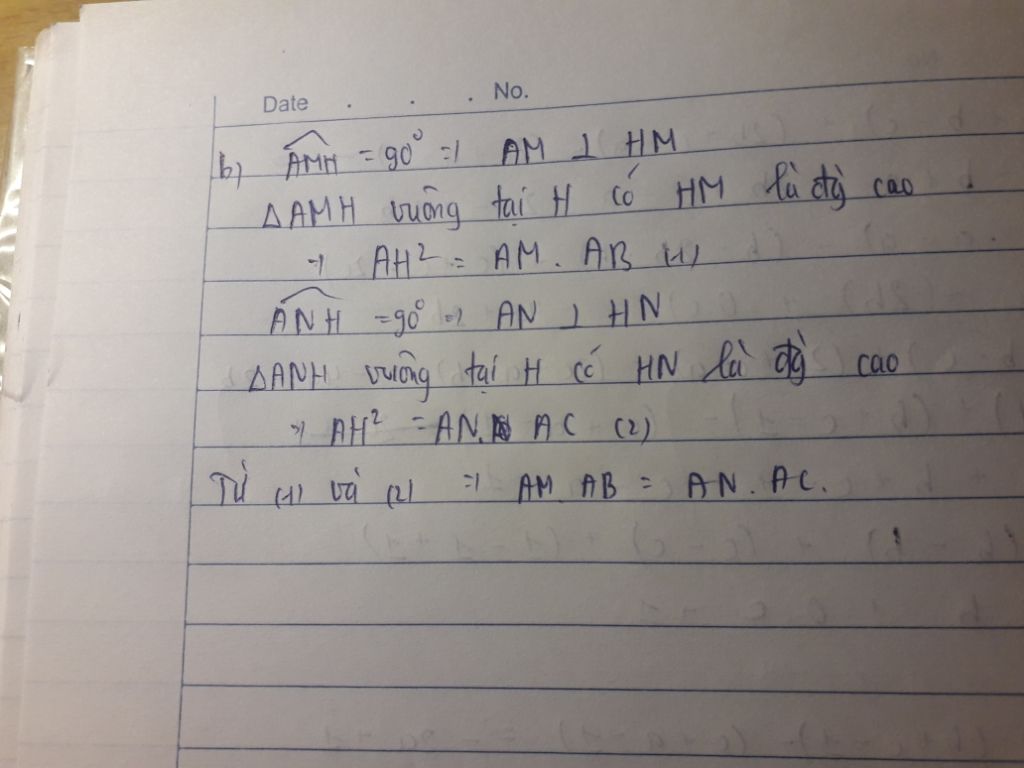 Date . . . No.
b) AMH = 90° => AM ⊥ HM
ΔAMH vuông tại H có HM là đg cao
=> AH² = AM . AB (1)
ANH = 90° => AN ⊥ HN
ΔANH vuông tại H có HN là đg cao
=> AH² = AN. AC (2)
Từ (1) và (2) => AM. AB = AN. AC.